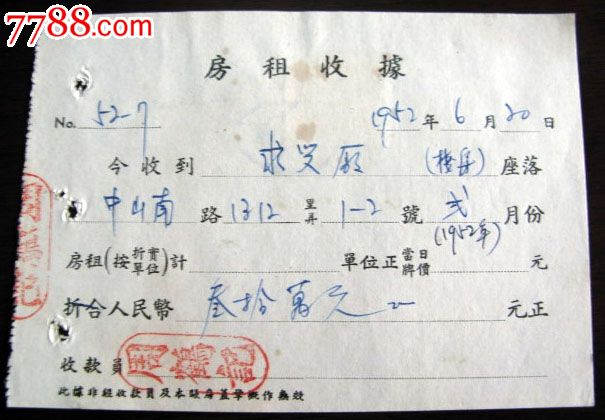 7788.com
房租收據
No. 52-7 1952年6月30日
今收到 求興厰 座落
中山南路1312里弄1-2號弍月份
(1952年)
房租(按折實單位)計 單位正當日牌價 元
折合人民幣 叁拾萬元 元正
收款員 周鶴記
此據非經收款員及本賬房蓋章概作無效
周鶴記